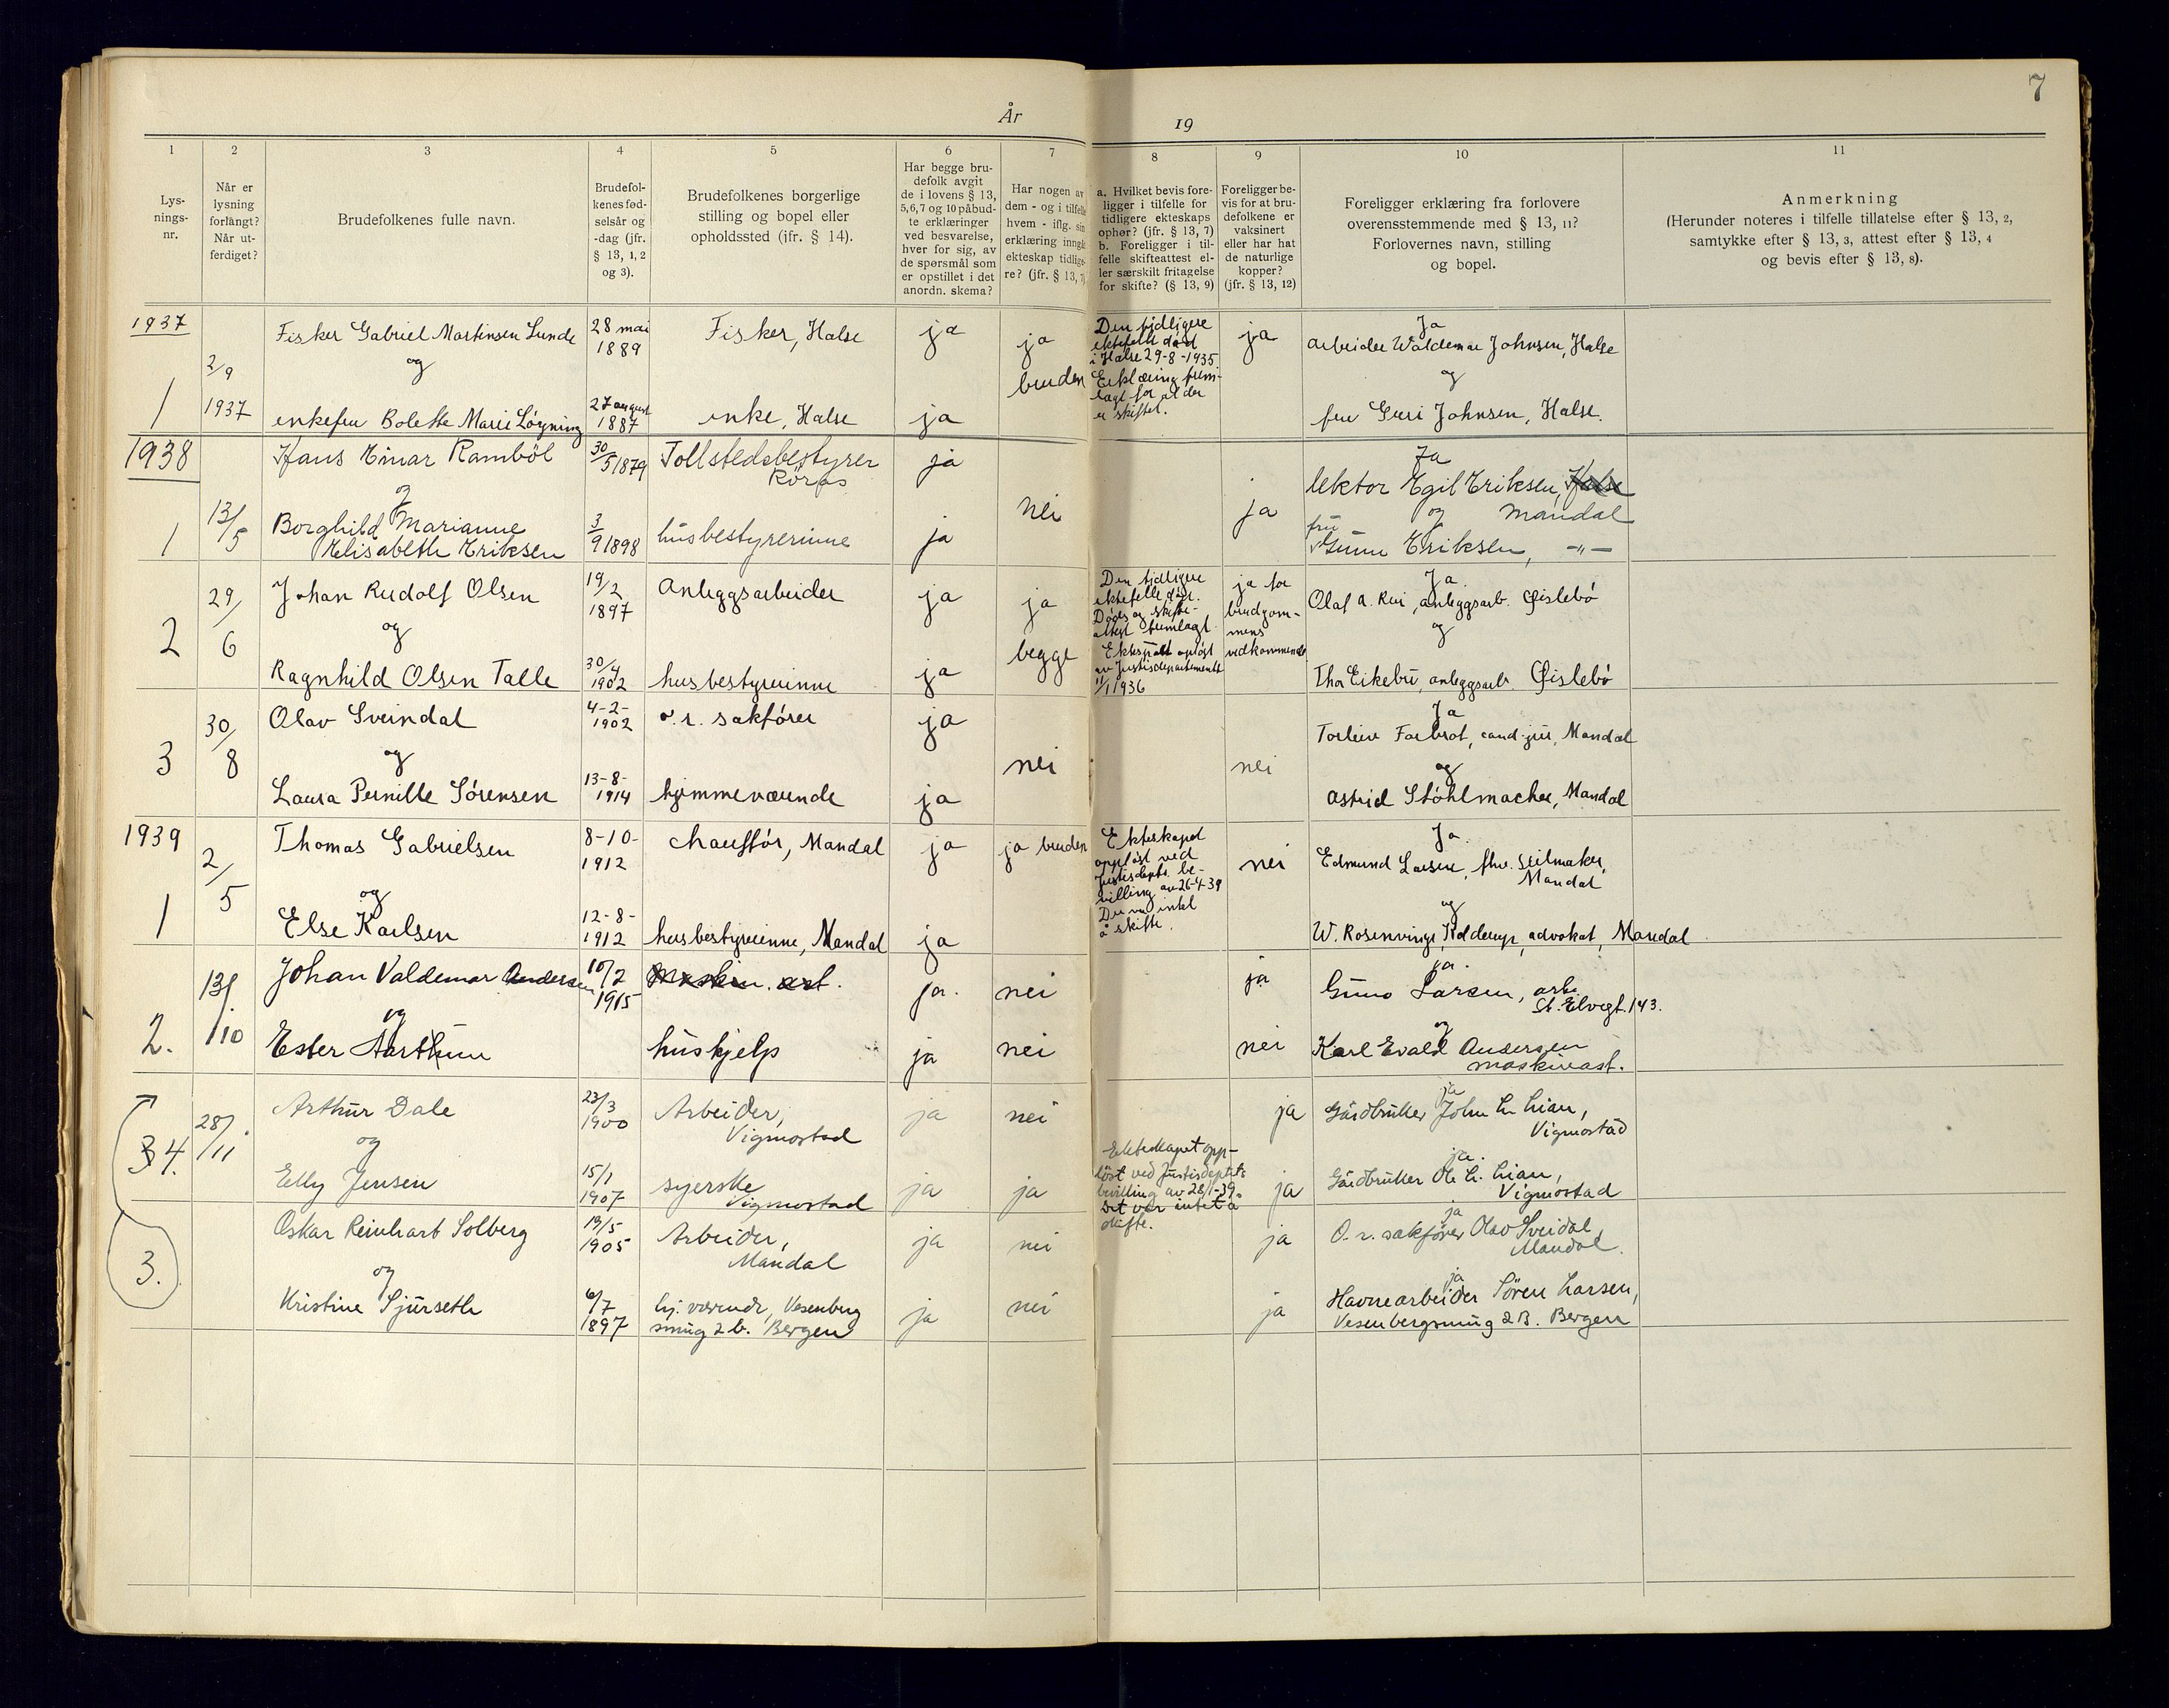 7
År
19
1
2
3
4
5
6
7
8
9
10
11
Lys-
nings-
nr.
Når er
lysning
forlangt?
Når ut-
ferdiget?
Brudefolkenes fulle navn.
Brudefol-
kenes fød-
selsår og
-dag (jfr.
§ 13, 1, 2
og 3).
Brudefolkenes borgerlige
stilling og bopel eller
opholdssted (jfr. § 14).
Har begge bru-
defolk avgit
de i lovens § 13,
5, 6, 7 og 10 påbud-
te erklæringer
ved besvarelse,
hver for sig, av
de spørsmål som
er opstillet i det
anordn. skema?
Har nogen av
dem - og i tilfelle
hvem - iflg. sin
erklæring inngå
ekteskap tidlige-
re? (jfr. § 13, 7)
a. Hvilket bevis fore-
ligger i tilfelle for
tidligere ekteskaps
ophør? (jfr. § 13, 7)
b. Foreligger i til-
felle skifteattest el-
ler særskilt fritagelse
for skifte? (§ 13, 9)
Foreligger be-
vis for at bru-
defolkene er
vaksinert
eller har hat
de naturlige
kopper?
(jfr. § 13, 12)
Foreligger erklæring fra forlovere
overensstemmende med § 13, 11?
Forlovernes navn, stilling
og bopel.
Anmerkning
(Herunder noteres i tilfelle tillatelse efter § 13, 2,
samtykke efter § 13, 3, attest efter § 13, 4
og bevis efter § 13, 8).
1937
1
2/9
1937
Fisker Gabriel Martinsen Lunde
og
enkefru Bolette Marie Løgning
28 mai
1889
27 august
1887
Fisker, Halse
enke, Halse
ja
ja
ja
bruden
Den tidligere
ektefelle død
i Halse 29-8-1935
Erklæring frem-
lagt for at der
er skiftet.
ja
Ja
arbeider Waldemar Johnsen, Halse
og
fru Guri Johnsen, Halse.
1938
1
13/5
Hans Einar Ramböl
og
Borghild Marianne
Elisabeth Eriksen
30/5 1879
3/9 1898
Tollstedsbestyrer
Röros
husbestyrerinne
ja
ja
nei
ja
Ja
lektor Egil Eriksen, Halse
og Mandal
fru
Gunn Eriksen, -"-
2
29/6
Johan Rudolf Olsen
og
Ragnhild Olsen Talle
19/2
1897
30/4
1902
Anleggsarbeider
husbestyrerinne
ja
ja
ja
begge
Den tidligere
ektefelle død.
Døds og skifte-
attest fremlagt.
Ektesp. opløst
av Justisdepartementet
11/1 1936
ja for
brudgom-
mens
vedkommende
Ja
Olaf A. Rui, anleggsarb. Øislebö
og
Thor Eikebu, anleggsarb. Øislebö
3
30/8
Olav Sveindal
og
Laura Pernille Sörensen
4-2-
1902
13-8-
1914
o.r. sakförer
hjemmeværende
ja
ja
nei
nei
Ja
Torleiv Farbrot, cand. jur, Mandal
og
Astrid Stöhlmacher, Mandal
1939
1
2/5
Thomas Gabrielsen
og
Else Karlsen
8-10-
1912
12-8-
1912
chauffør, Mandal
husbestyrerinne, Mandal
ja
ja
ja bruden
Ekteskapet
oppløst ved
Justisdepts. be-
villing av 26-4-39
Der var intet
å skifte.
nei
Ja.
Edmund Larsen, fhv. seilmaker,
Mandal
og
W. Rosenvinge Kolderup, advokat, Mandal
2.
13/10
Johan Valdemar Andersen
og
Ester Aarthun
10/2
1915
Maskin. ast.
huskjelp
ja.
ja
nei
nei
ja
nei
ja.
Guno Larsen, arb.
St. Elvegt. 143.
og
Karl Evald Andersen
maskinast.
34.
28/11
Arthur Dale
og
Elly Jensen
23/3
1900
15/1
1907
Arbeider,
Vigmostad
syerske
Vigmostad
ja
ja
nei
ja
Ekteskapet opp-
löst ved Justisdeptets
bevilling av 28/1-39.
Det var intet å
skifte.
ja
ja
ja
Gårdbruker John L. Lian,
Vigmostad
ja.
Gårdbruker Ole L. Lian,
Vigmostad
3.
Oskar Reinhart Solberg
og
Kristine Sjurseth
13/5
1905
6/7
1897
Arbeider,
Mandal
hj. værende, Vesenberg
smug 2 b. Bergen
ja
ja
nei
nei
ja
ja
ja
O.r. sakfører Olav Sveidal,
Mandal.
ja
Havnearbeider Sören Larsen,
Vesenbergsmug 2 B. Bergen